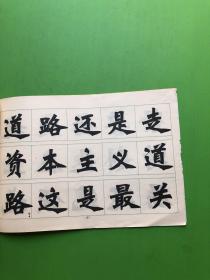 道路还是走
资本主义道
路这是最关